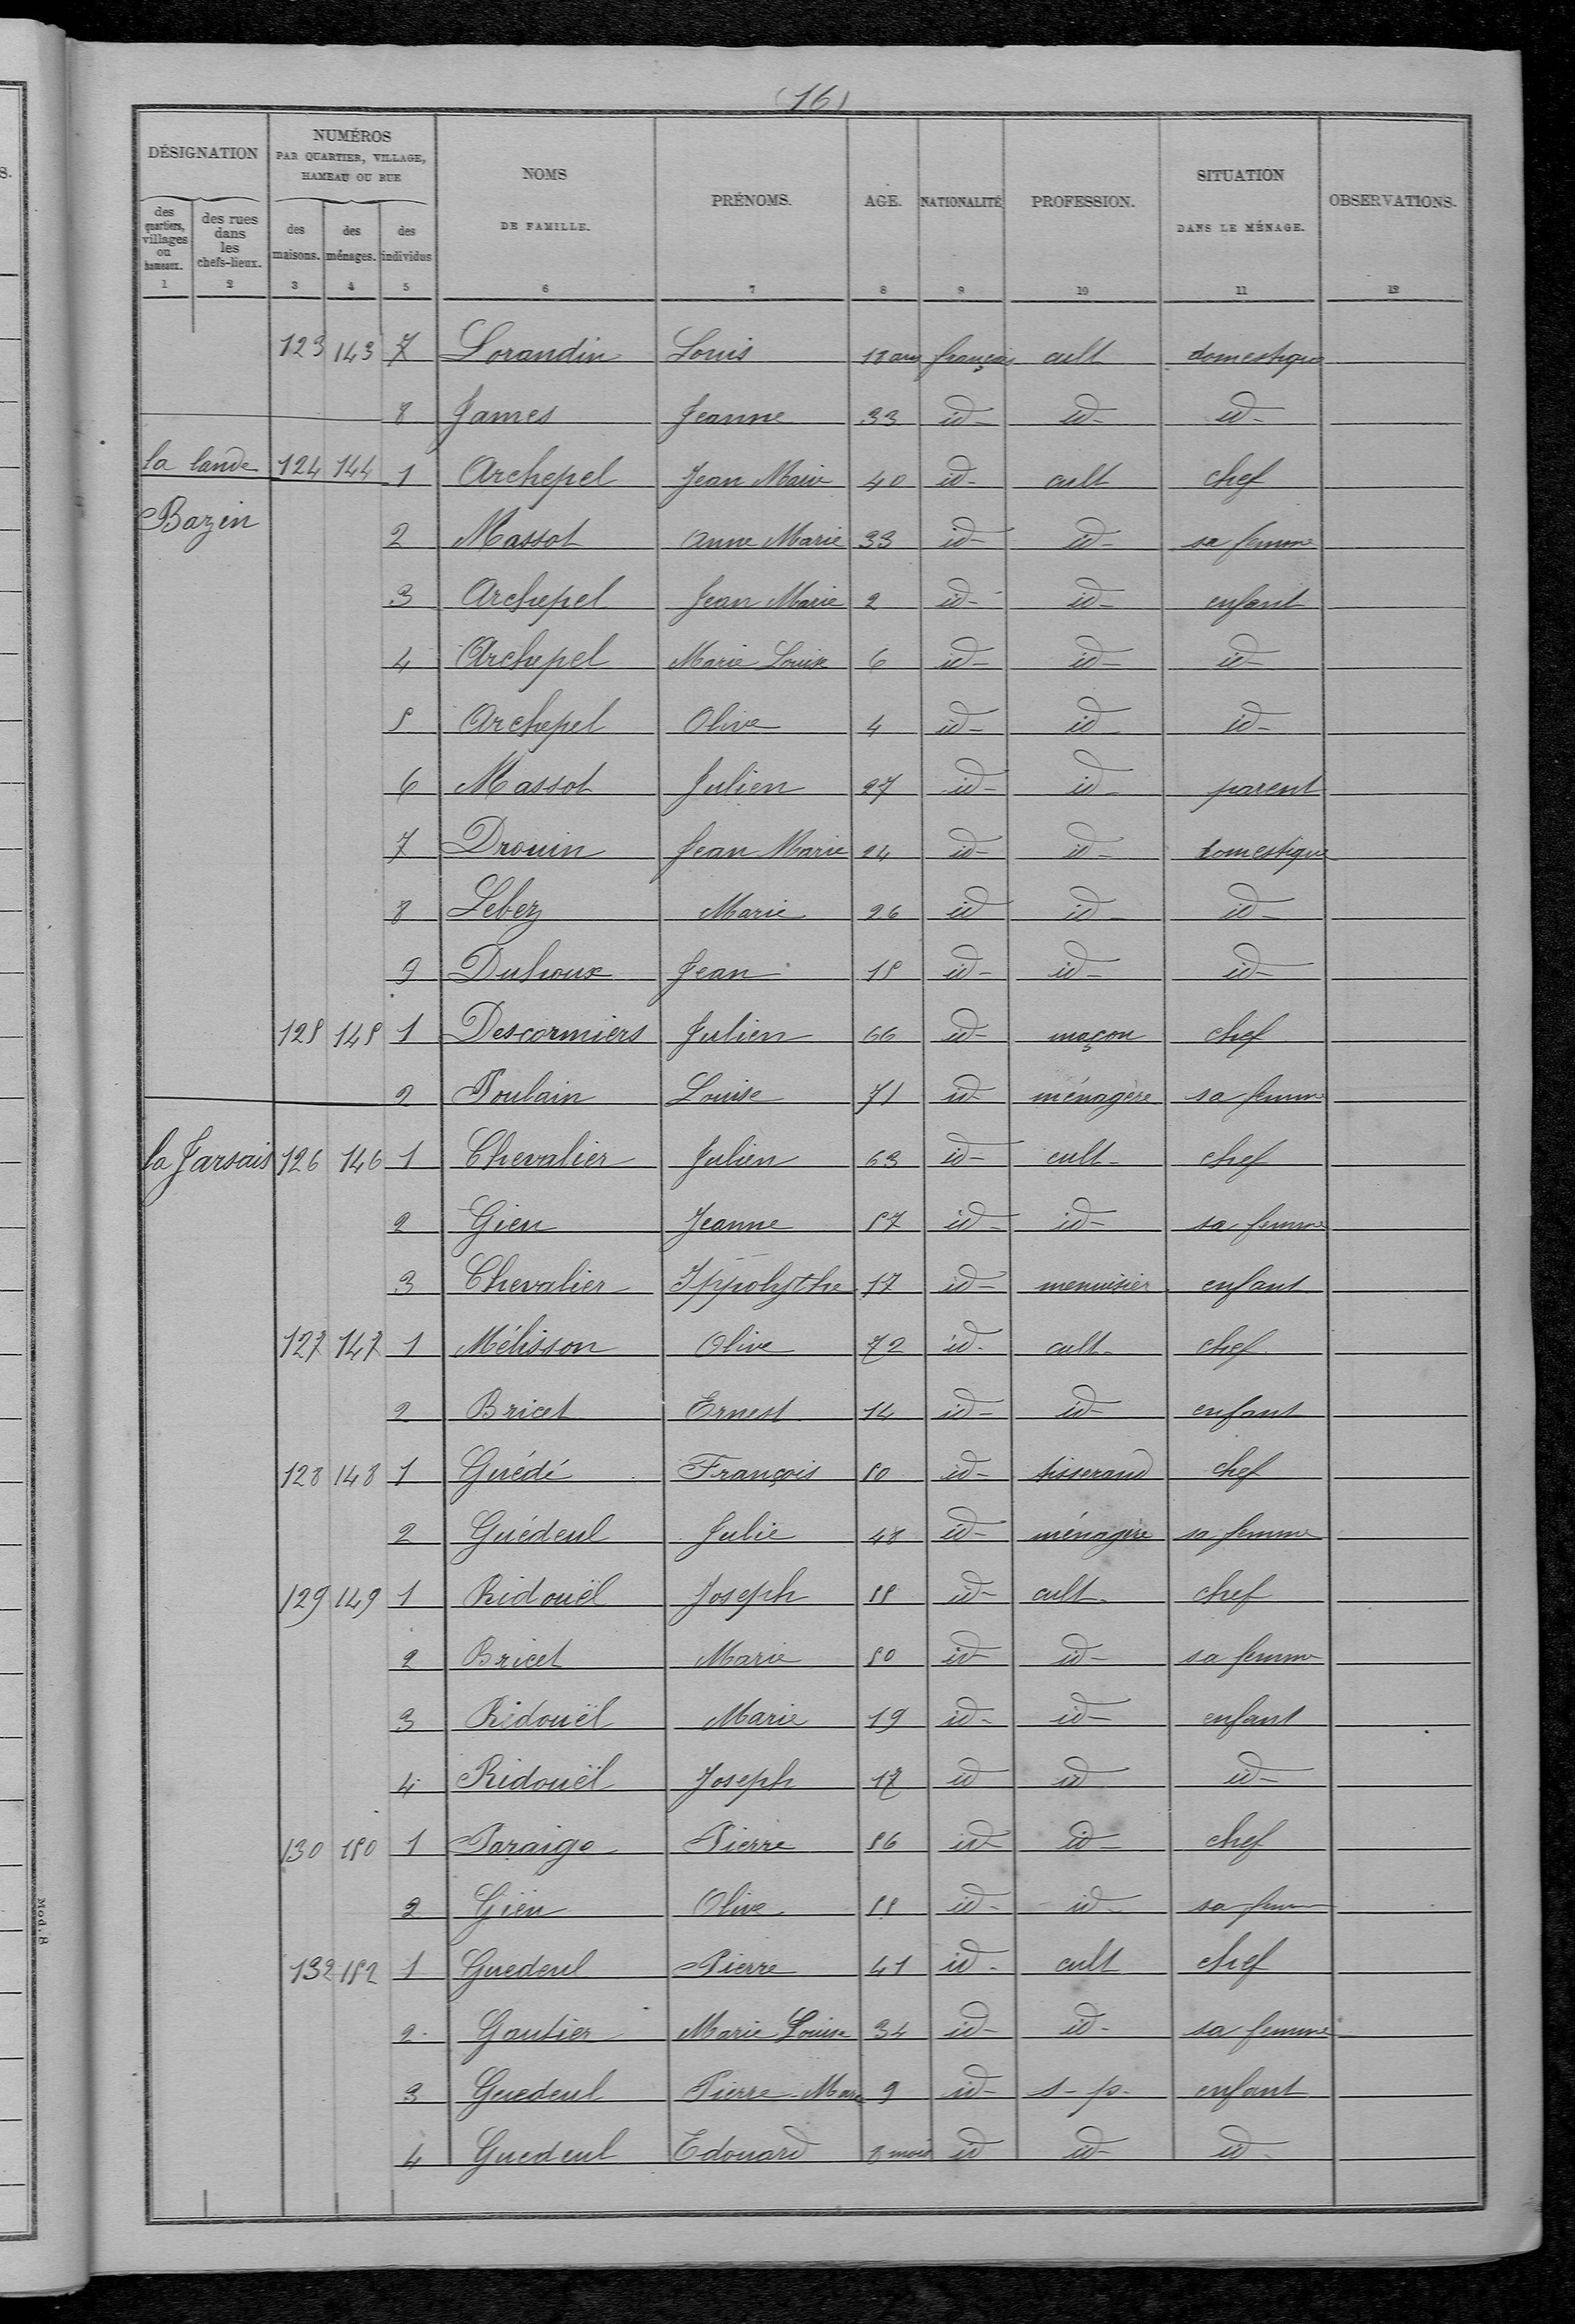 (16)
DÉSIGNATION
NUMÉROS PAR QUARTIER, VILLAGE, HAMEAU OU RUE
NOMS DE FAMILLE.
PRÉNOMS.
AGE.
NATIONALITÉ
PROFESSION.
SITUATION DANS LE MÉNAGE.
OBSERVATIONS.
des quartiers, villages ou hameaux.
des rues dans les chefs-lieux.
des maisons.
des ménages.
des individus
1 2 3 4 5 6 7 8 9 10 11 12
123 143 7 Lorandin Louis 18 ans français cult domestique
8 James Jeanne 33 id- id- id-
la lande 124 144 1 Archepel Jean Marie 40 id- cult chef
Bazin 2 Massot Anne Marie 33 id- id- sa femme
3 Archepel Jean Marie 2 id- id- enfant
4 Archepel Marie Louise 6 id- id- id-
5 Archepel Olive 4 id- id id-
6 Massot Julien 27 id- id- parent
7 Drouin Jean Marie 24 id- id- domestique
8 Lebez Marie 26 id id- id-
9 Duhoux Jean 15 id- id- id-
125 145 1 Descormiers Julien 66 id- maçon chef
2 Poulain Louise 71 id- ménagère sa femme
la Jarsais 126 146 1 Chevalier Julien 63 id- cult- chef
2 Gien Jeanne 57 id- id- sa femme
3 Chevalier Ippolythe 17 id- menuisier enfant
127 147 1 Mélisson Olive 72 id- cult- chef
2 Bricet Ernest 14 id- id- enfant
128 148 1 Guédé François 50 id- tisserand chef
2 Guédeul Julie 48 id- ménagère sa femme
129 149 1 Ridouël Joseph 55 id- cult- chef
2 Bricet Marie 50 id- id- sa femme
3 Ridouël Marie 19 id- id- enfant
4 Ridouël Joseph 17 id id id-
130 150 1 Paraige Pierre 56 id- id- chef
2 Gien Olive 55 id- id- sa femme
132 152 1 Guedeul Pierre 41 id- cult chef
2 Gautier Marie Louise 34 id- id- sa femme
3 Guedeul Pierre-Marie 9 id- s-p- enfant
4 Guedeul Edouard 8 mois id id- id-
Mod. B